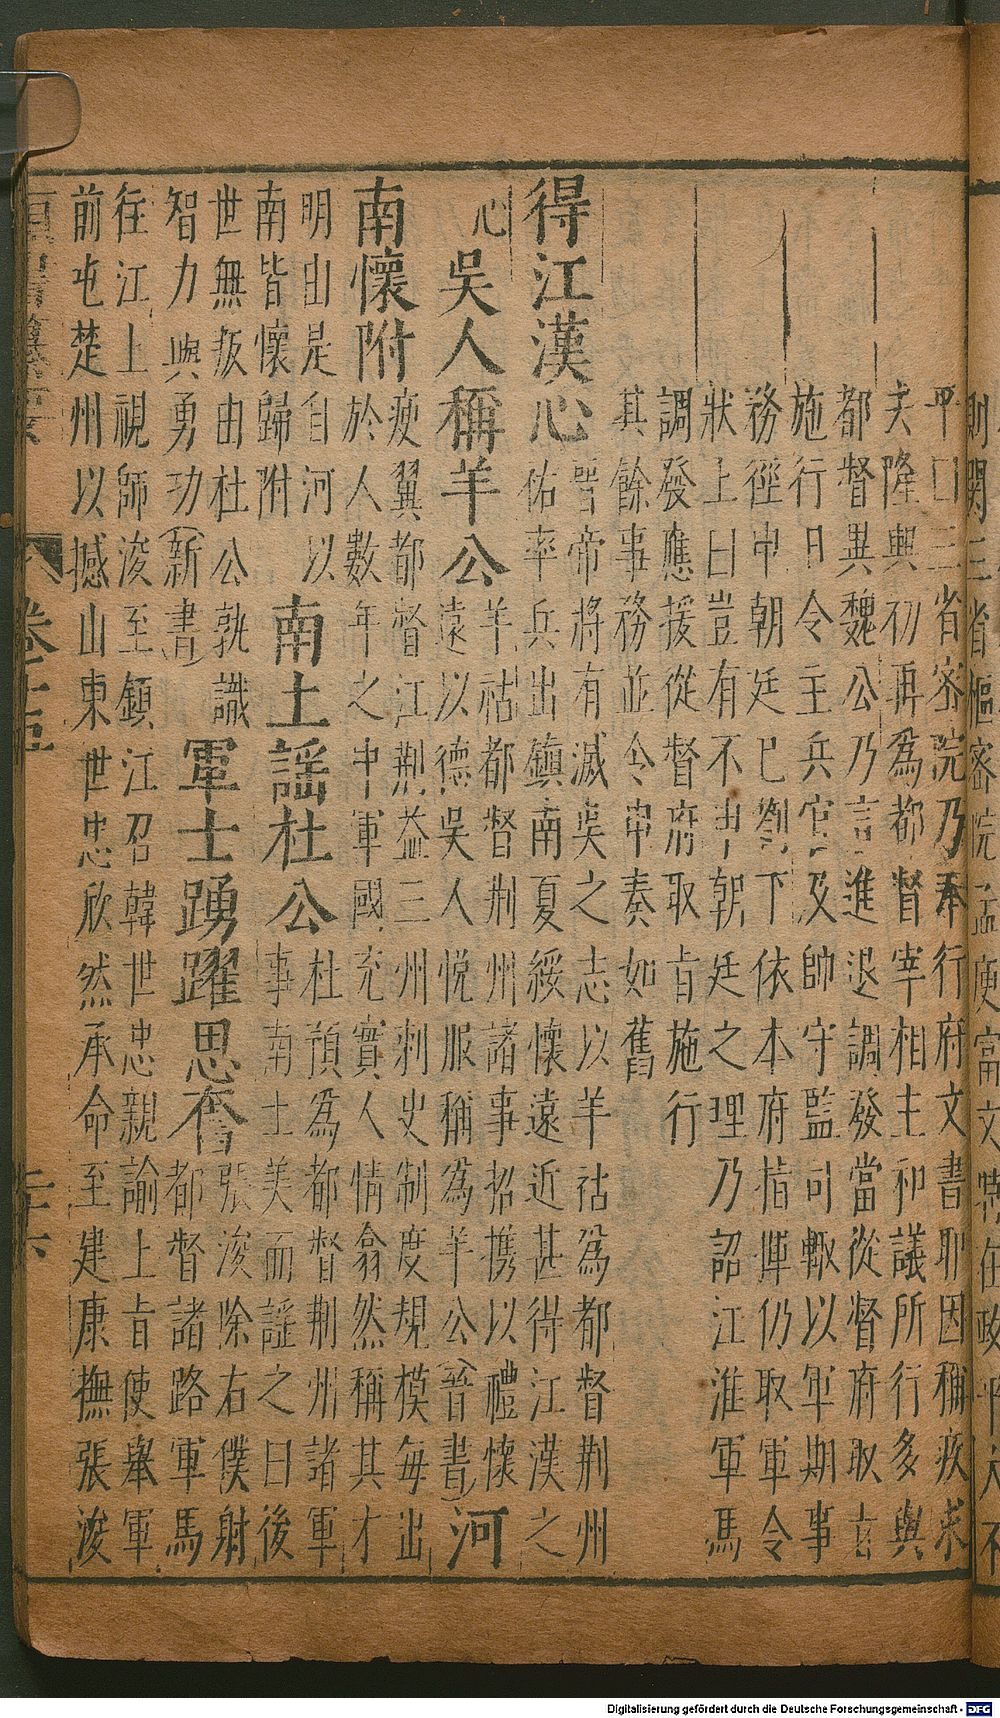 平口三省密院乃奉行府文書耶因稱疾求
去隆興初再為都督宰相主和議所行多與
都督異魏公乃言進退調發當從督府取旨
施行日令主兵官及帥守監司輙以軍期事
務徑申朝廷已劄下依本府指揮仍取軍令
狀上曰豈有不申朝廷之理乃詔江淮軍馬
調發應援從督府取旨施行
其餘事務並令申奏如舊
得江漢心 晋帝將有滅吳之志以羊祜為都督荆州
佑率兵出鎮南夏綏懷遠近甚得江漢之
心 吳人稱羊公 羊祜都督荆州諸事招携以禮懷
遠以德吳人悅服稱為羊公(晉書) 河
南懷附 庾翼都督江荆益三州刺史制度規模每出
於人數年之中軍國充實人情翕然稱其才
明由是自河以
南皆懷歸附 南土謡杜公 杜預為都督荆州諸軍
事南土美而謡之曰後
世無叛由杜公孰識
智力與勇功(新書) 軍士踴躍思奮 張浚除右僕射
都督諸路軍馬
往江上視師浚至鎮江召韓世忠親諭上旨使舉軍
前屯楚州以撼山東世忠欣然承命至建康撫張浚
Digitalisierung gefördert durch die Deutsche Forschungsgemeinschaft - DFG